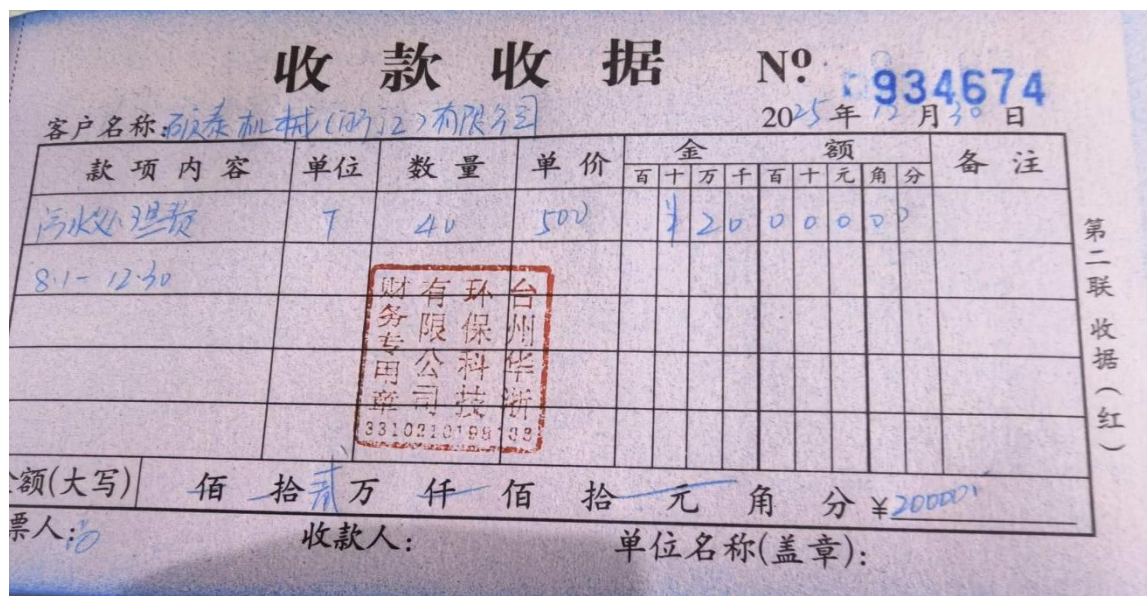 收款收据 Nº 0934674
客户名称:砳泰机械(浙江)有限公司 2025年12月30日
款项内容 单位 数量 单价 金额 备注
百十万千百十元角分
污水处理费 T 40 500 ¥2000000
8.1-12.30
台州华浙
环保科技
有限公司
财务专用章
3310210198133
额(大写) 佰 拾贰万 仟 佰 拾 元 角 分 ¥20000.
票人: 收款人: 单位名称(盖章):
第二联 收据(红)